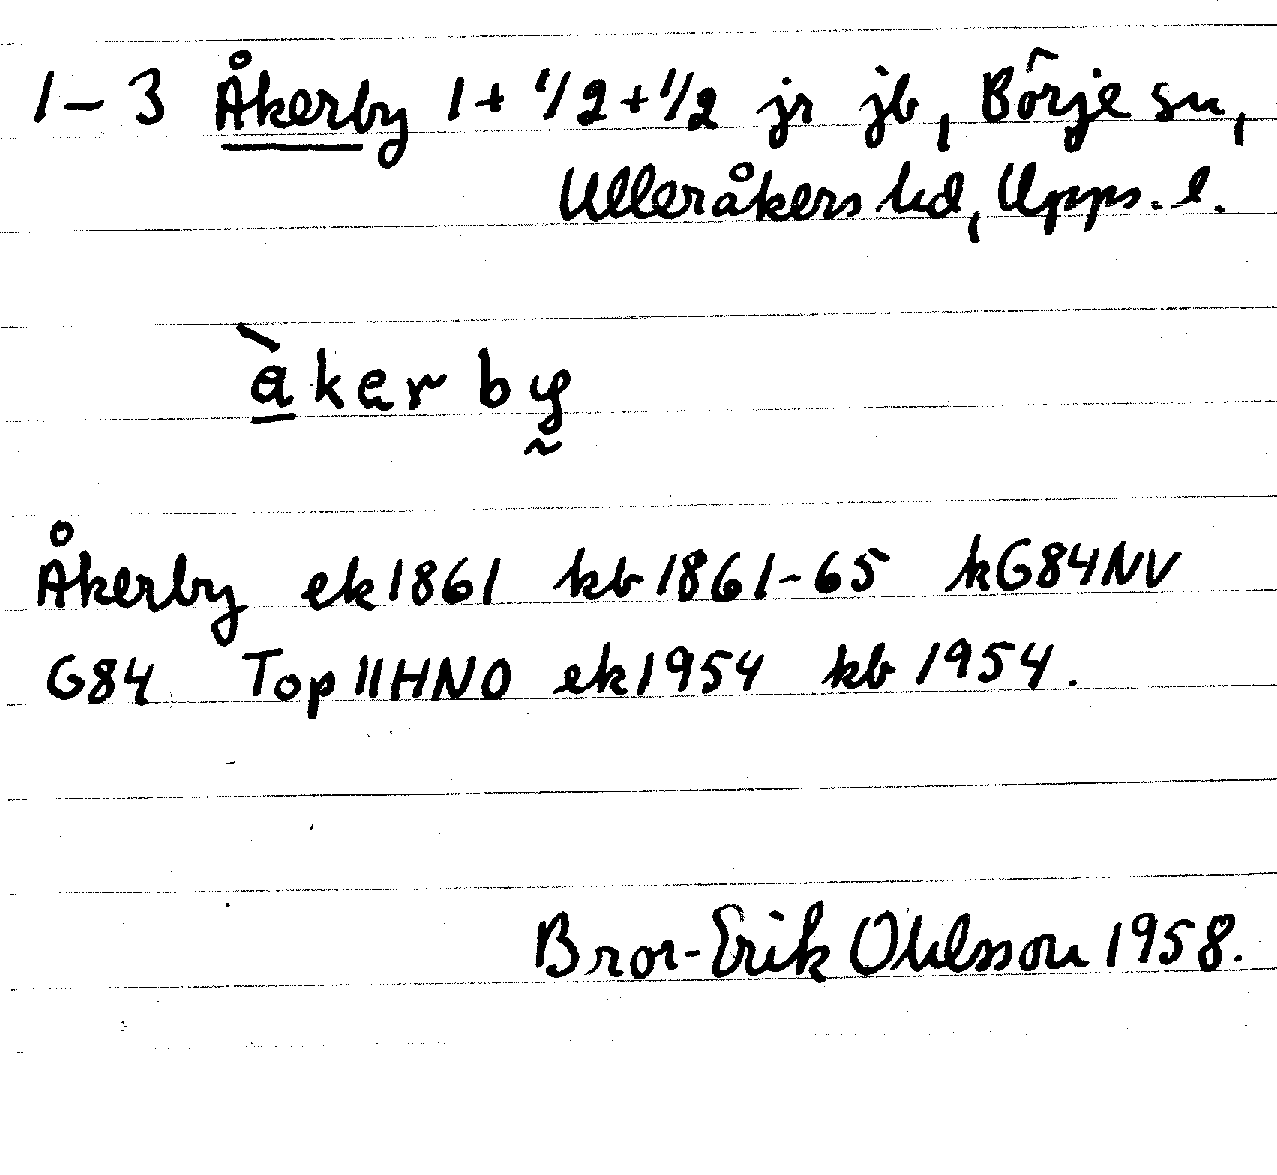 1-3 Åkerby 1+1/2+1/2 jr jb, Börje sn,
Ulleråkers hd, Upps. l.
àkerby
Åkerby ek1861 kb1861-65 kG84NV
G84 Top11HNO ek1954 kb1954.
Bror-Erik Ohlsson 1958.